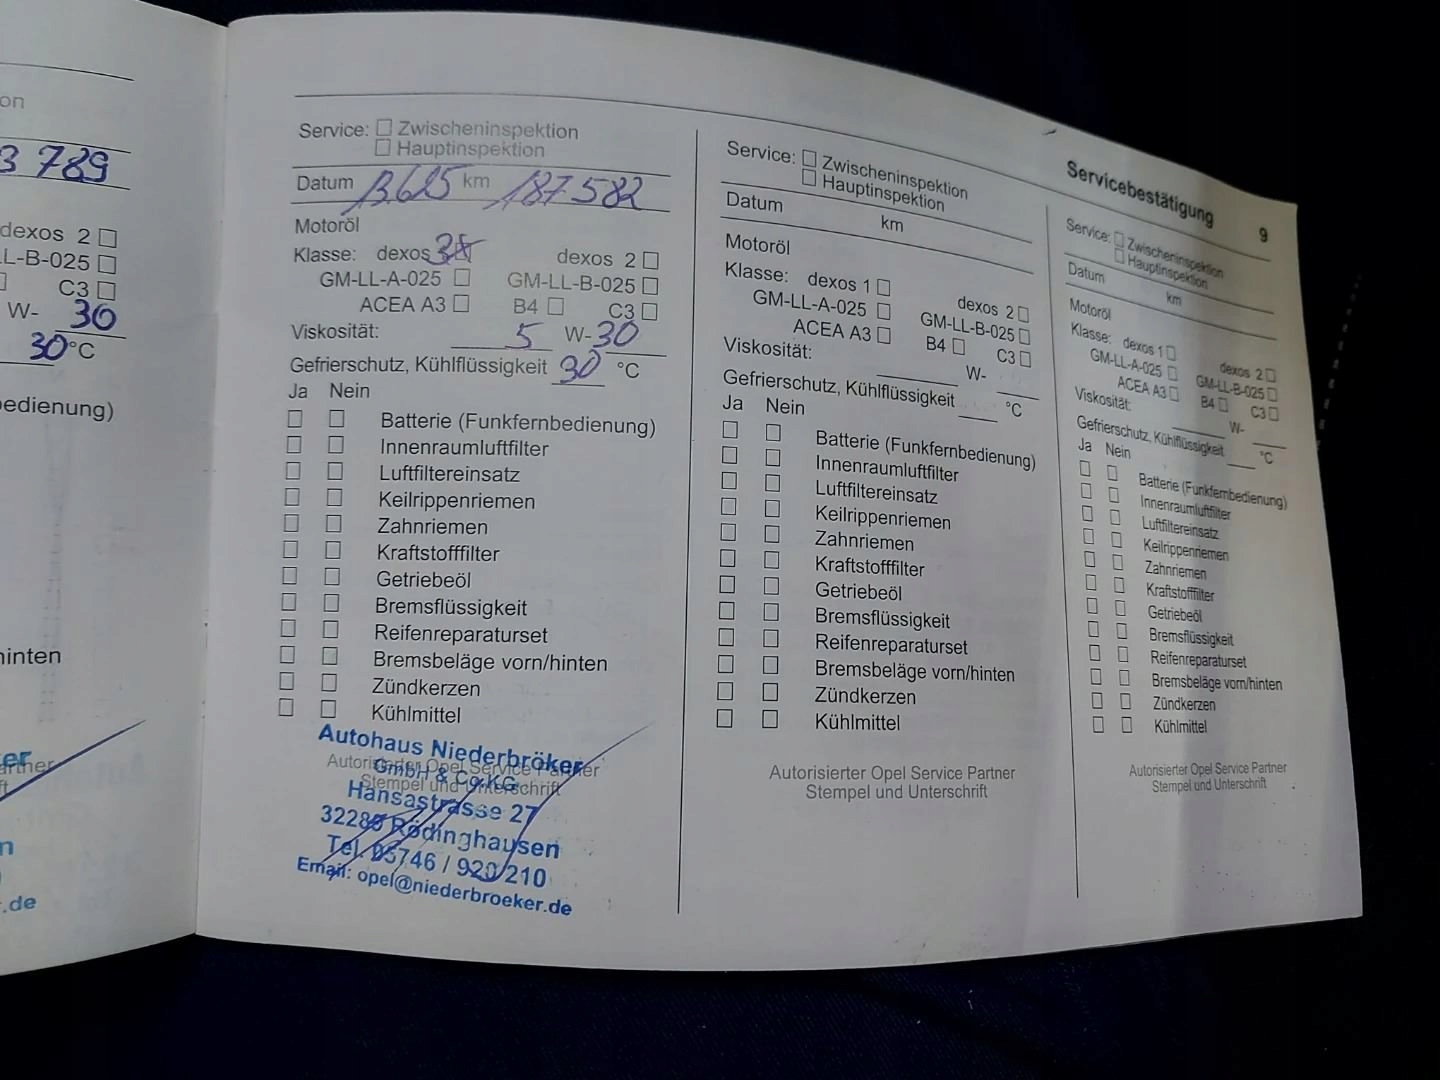 on
3 789
dexos 2
LL-B-025
C3
W- 30
30 °C
edienung)
hinten
er
artner
ft
m
.de
Service: Zwischeninspektion
Hauptinspektion
Datum 13.6.25 km 187 582
Motoröl
Klasse: dexos dexos 2
GM-LL-A-025 GM-LL-B-025
ACEA A3 B4 C3
Viskosität: 5 W-30
Gefrierschutz, Kühlflüssigkeit 30 °C
Ja Nein
Batterie (Funkfernbedienung)
Innenraumluftfilter
Luftfiltereinsatz
Keilrippenriemen
Zahnriemen
Kraftstofffilter
Getriebeöl
Bremsflüssigkeit
Reifenreparaturset
Bremsbeläge vorn/hinten
Zündkerzen
Kühlmittel
Autohaus Niederbröker
Autorisierter Opel Service Partner
GmbH & Co.KG
Stempel und Unterschrift
Hansastrasse 27
32289 Rödinghausen
Tel. 05746 / 920 210
Email: opel@niederbroeker.de
Service: Zwischeninspektion
Hauptinspektion
Datum km
Motoröl
Klasse: dexos 1 dexos 2
GM-LL-A-025 GM-LL-B-025
ACEA A3 B4 C3
Viskosität: W-
Gefrierschutz, Kühlflüssigkeit °C
Ja Nein
Batterie (Funkfernbedienung)
Innenraumluftfilter
Luftfiltereinsatz
Keilrippenriemen
Zahnriemen
Kraftstofffilter
Getriebeöl
Bremsflüssigkeit
Reifenreparaturset
Bremsbeläge vorn/hinten
Zündkerzen
Kühlmittel
Autorisierter Opel Service Partner
Stempel und Unterschrift
Servicebestätigung 9
Service: Zwischeninspektion
Hauptinspektion
Datum km
Motoröl
Klasse: dexos 1 dexos 2
GM-LL-A-025 GM-LL-B-025
ACEA A3 B4 C3
Viskosität: W-
Gefrierschutz, Kühlflüssigkeit °C
Ja Nein
Batterie (Funkfernbedienung)
Innenraumluftfilter
Luftfiltereinsatz
Keilrippenriemen
Zahnriemen
Kraftstofffilter
Getriebeöl
Bremsflüssigkeit
Reifenreparaturset
Bremsbeläge vorn/hinten
Zündkerzen
Kühlmittel
Autorisierter Opel Service Partner
Stempel und Unterschrift